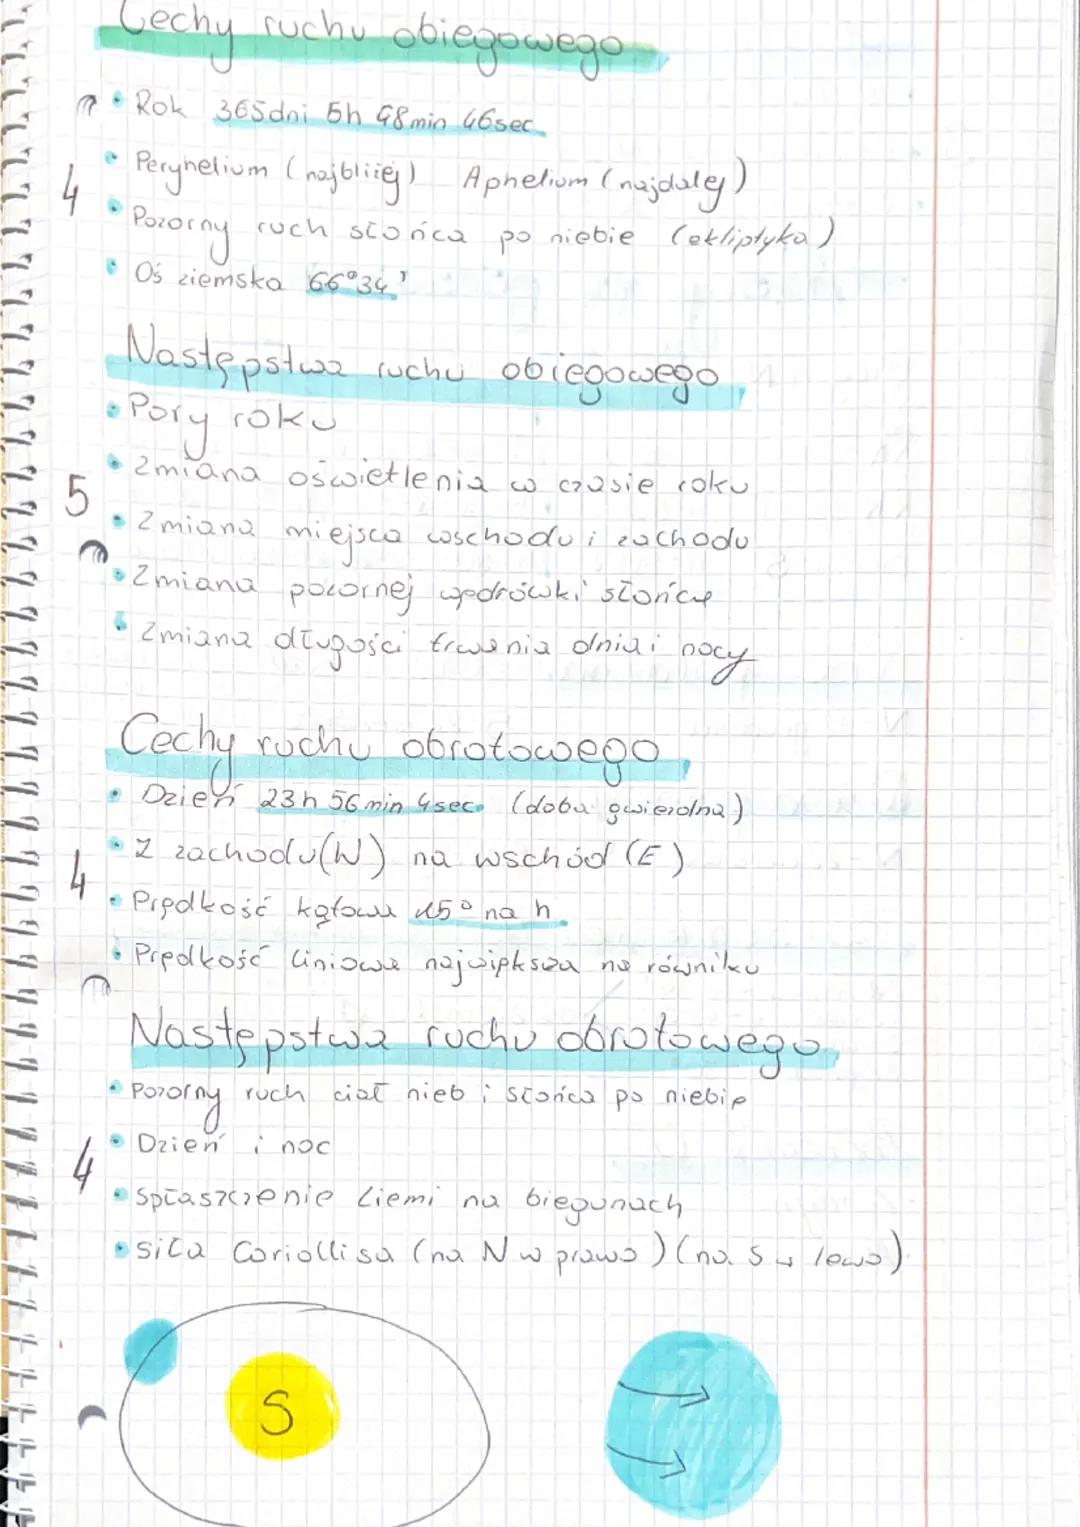 Cechy ruchu obiegowego
• Rok 365dni 5h 48min 46sec.
4
• Peryhelium (najbliżej) Aphelium (najdalej)
• Pozorny ruch słońca po niebie (ekliptyka)
• Oś ziemska 66°34'
Następstwa ruchu obiegowego
• Pory roku
• Zmiana oświetlenia w czasie roku
5
• Zmiana miejsca wschodu i zachodu
• Zmiana pozornej wędrówki słońca
• Zmiana długości trwania dnia i nocy
Cechy ruchu obrotowego
• Dzień 23h 56min 4sec. (doba gwiezdna)
• Z zachodu(W) na wschód (E)
4
• Prędkość kątowa 15° na h.
• Prędkość liniowa największa na równiku
Następstwa ruchu obrotowego
• Pozorny ruch ciał nieb i słońca po niebie
• Dzień i noc
4
• Spłaszczenie Ziemi na biegunach
• siła Coriollisa (na N w prawo) (na S w lewo)
S